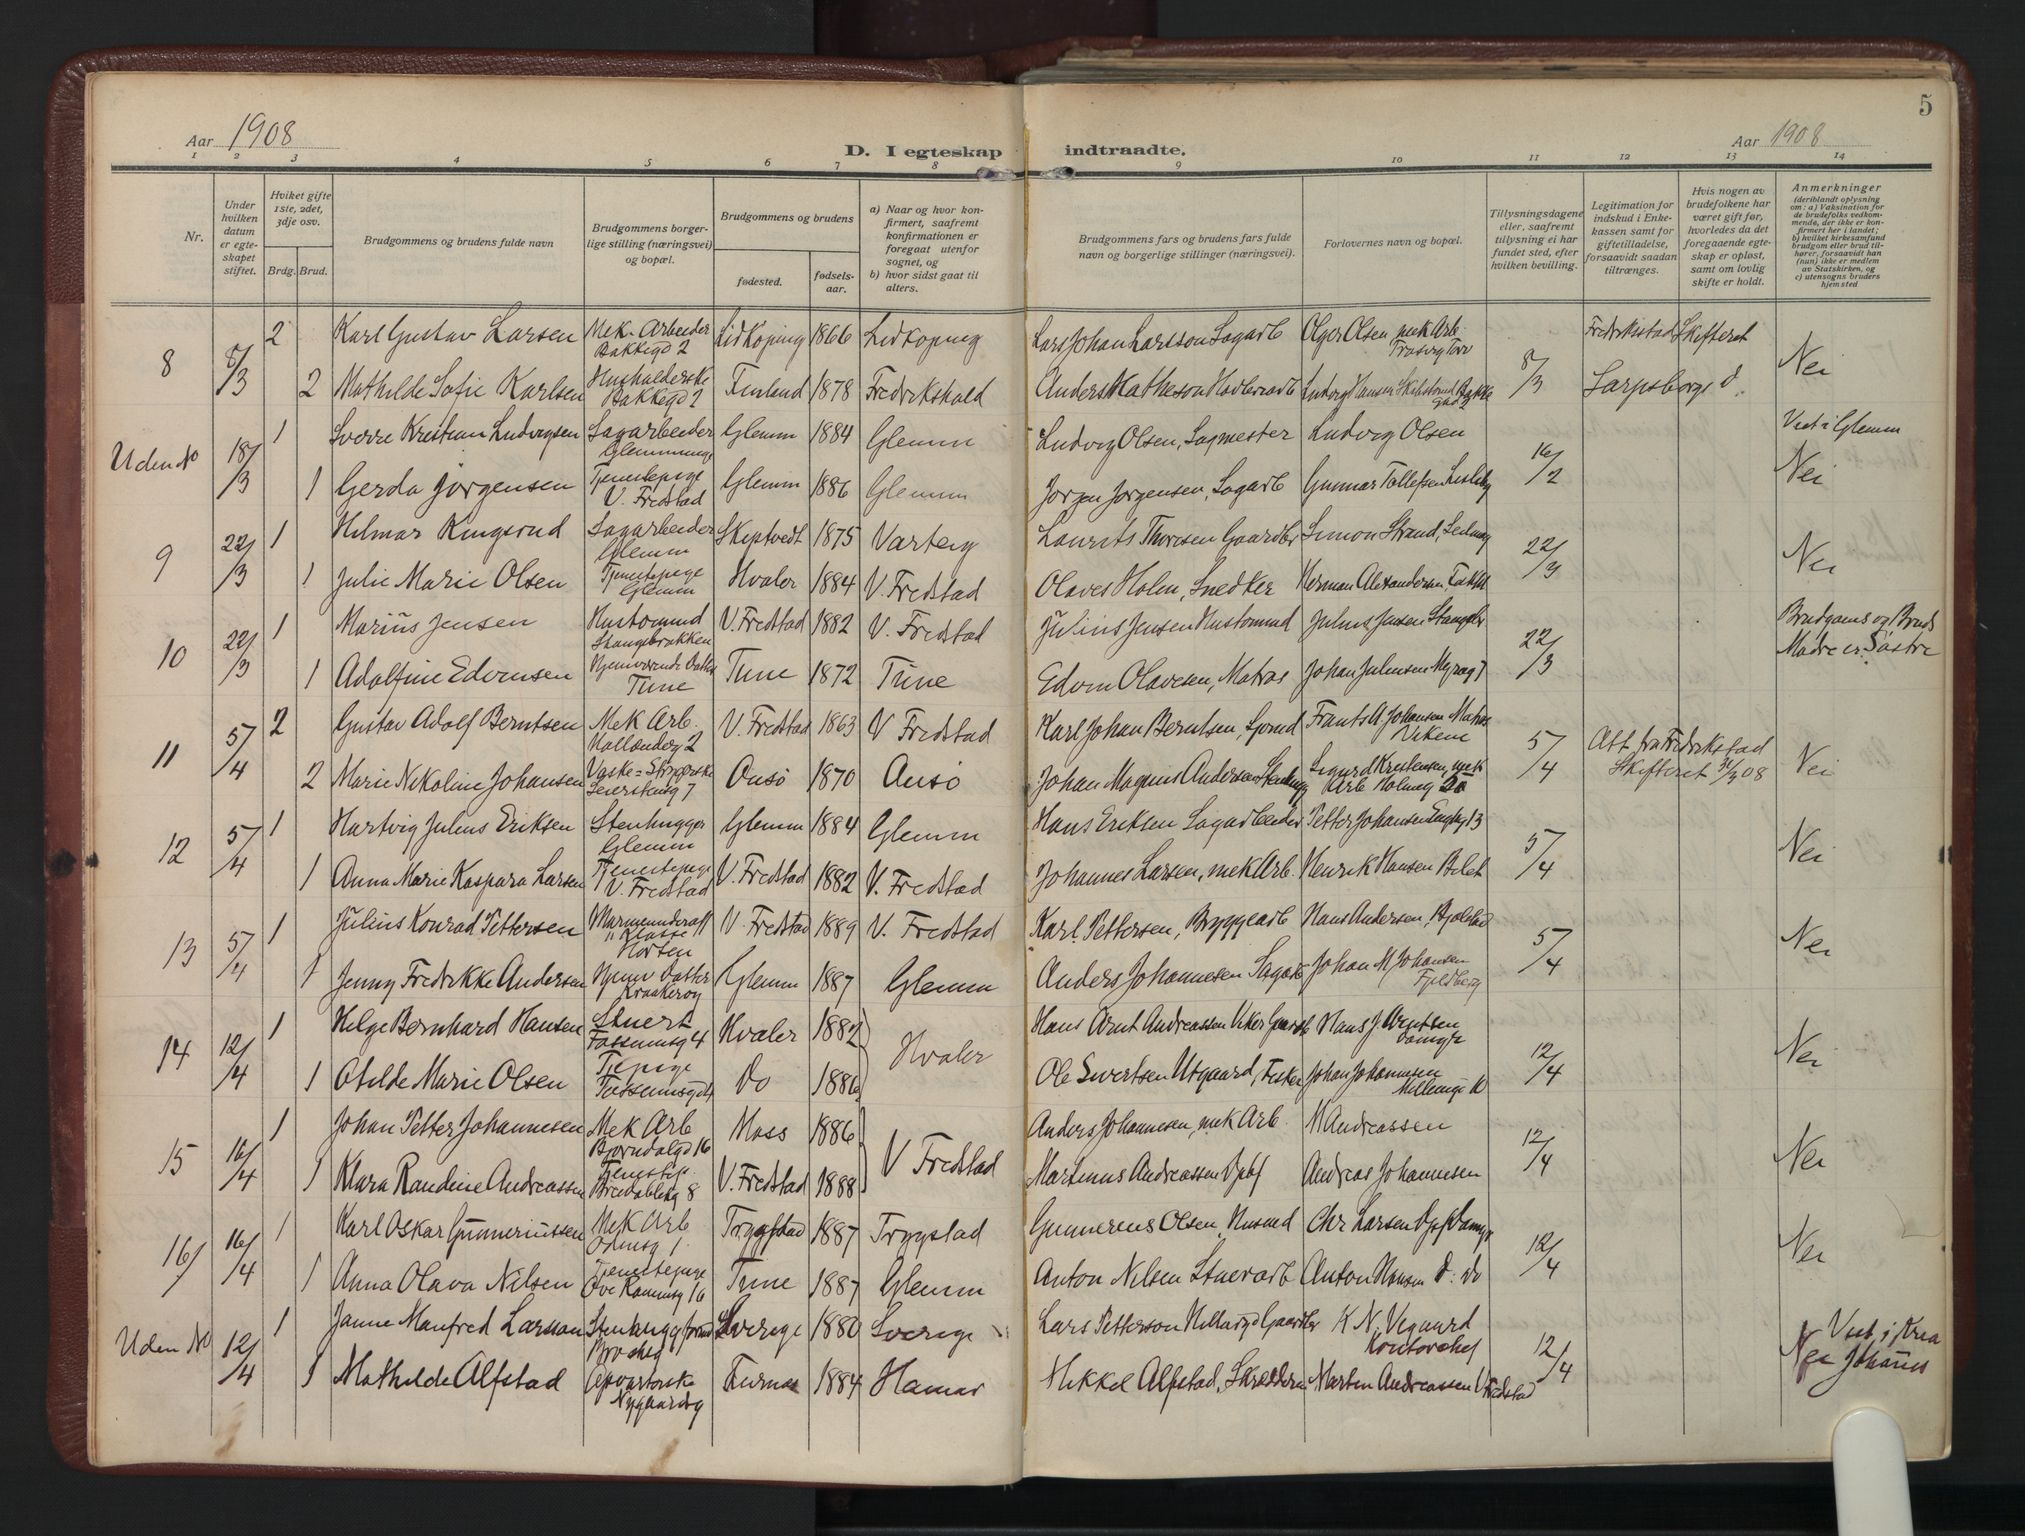 5
Aar 1908
D. I egteskap indtraadte.
Aar 1908
1 2 3 4 5 6 7 8 9 10 11 12 13 14
Nr.
Under hvilken datum er egteskapet stiftet.
Hviket gifte 1ste, 2det, 3dje osv.
Brdg. Brud.
Brudgommens og brudens fulde navn
Brudgommens borgerlige stilling (næringsvei) og bopæl.
Brudgommens og brudens
fødested.
fødselsaar.
a) Naar og hvor konfirmert, saafremt konfirmationen er foregaat utenfor sognet, og
b) hvor sidst gaat til alters.
Brudgommens fars og brudens fars fulde navn og borgerlige stillinger (næringsvei).
Forlovernes navn og bopæl.
Tillysningsdagene eller, saafremt tillysning ei har fundet sted, efter hvilken bevilling.
Legitimation for indskud i Enkekassen samt for giftetilladelse, forsaavidt saadan tiltrænges.
Hvis nogen av brudefolkene har været gift før, hvorledes da det foregaaende egteskap er opløst, samt om lovlig skifte er holdt.
Anmerkninger (deriblandt oplysning om: a) Vaksination for de brudefolks vedkommende, der ikke er konfirmert her i landet; b) hvilket kirkesamfund brudgom eller brud tilhører, forsaavidt han (hun) ikke er medlem av Statskirken, og c) utensogns bruders hjemsted
8 8/3 2 Karl Gustav Larsen Mek. Arbeider Bakkegd 2 Lidkoping 1866 Lidkoping Lars Johan Larsson Sagarb Olger Olsen mek Arb. 8/3 Fredrikstad Skifteret Nei
2 Mathilde Sofie Karlsen Husholderske Bakkegd 2 Finland 1878 Fredrikshald Anders Matheson Ludvig Hansen Sarpsborgs d.
Uden No 18/3 1 Sverre Kristian Ludvigsen Sagarbeider Glemm 1884 Glemm Ludvig Olsen, Sagmester Ludvig Olsen 16/2 Viet i Glemm Nei
1 Gerda Jørgensen Tjenestepige V. Fredstad Glemm 1886 Glemm Jørgen Jørgensen, Sagarb Gunnar Tollefsen
9 22/3 1 Hilmar Kingsrud Sagarbeider Glemm Skiptvedt 1875 Varteig Laurits Thoresen Gaardbr Simon Strand, 22/3 Nei
1 Julie Marie Olsen Tjenestepige Glemm Hvaler 1884 V. Fredstad Olaves Holm, Snedker Herman Alexandersen
10 22/3 1 Marius Jensen Hustomand Stangebrokken V. Fredstad 1882 V. Fredstad Julius Jensen Hustomand Julius Jensen 22/3 Brudgoms og Bruds Mødre er Søstre
1 Adolfine Edvinsen Hjemværende Datter Tune Tune 1872 Tune Edvin Olavesen, Matros Johan Juliusen Myrag 7
11 5/4 2 Gustav Adolf Berntsen Mek Arb. Hollenderg 2 V. Fredstad 1863 V Fredstad Karl Johan Berntsen, Frants A. Johansen Matros 5/4 Att. fra Fredrikstad Skifteret 31/3 08 Nei
2 Marie Nikoline Johansen Vaske- Strygerske Seierstensg 7 Onsø 1870 Onsø Johan Magnus Andersen Sigurd Kristensen, mek Arb Holmeg 20
12 5/4 1 Hartvig Julius Eriksen Stenhugger Glemm Glemm 1884 Glemm Hans Eriksen Sagarbeider Petter Johansen 5/4 Nei
1 Anna Marie Kaspara Larsen Tjenestepige V. Fredstad V. Fredstad 1882 V. Fredstad Johannes Larsen, mek Arb. Henrik Hansen
13 5/4 1 Julius Konrad Pettersen Horten V. Fredstad 1889 V. Fredstad Karl Pettersen, Bryggearb Hans Andersen, 5/4 Nei
1 Jenny Fredrikke Andersen Hjemv. Datter Kraakerøy Glemm 1887 Glemm Anders Johannesen Sagarb Johan M Johansen Fjeldberg
14 12/4 1 Helge Bernhard Hansen Stuert Hvaler 1882 Hvaler Hans Arnt Andreassen Viker Gaardb Hans J Arntsen 12/4 Nei
1 Otilde Marie Olsen Tjepige Do 1886 Ole Sivertsen Utgaard, Fisker Johan Johannesen
15 16/4 1 Johan Petter Johannesen Mek Arb Bjørndalgd 16 Moss 1886 V Fredstad Anders Johannesen, mek Arb. M Andreassen 12/4 Nei
1 Klara Randine Andreassen V. Fredstad 1888 Martinus Andreassen Andreas Johannesen
16/ 16/4 1 Karl Oskar Gunneriussen Mek Arb Odinsg 1. Trygstad 1887 Trygstad Gunnerius Olsen, Husmd Chr. Larsen 12/4 Nei
1 Anna Olava Nilsen Tjenestepige Ove Rammsg 16 Tune 1887 Glemm Anton Nilsen Stuerarb Anton Hansen d: do
Uden No 12/4 1 Janne Manfred Larsson Sverige 1880 Sverige Lars Petterson K. N. Vegaard Kontorchef 12/4 Viet i Kria Johannes Nei
1 Mathilde Alfstad Opvarterske Nygaardsg Furnes 1884 Hamar Mikkel Alfstad, Skrædder Marten Andreassen V Fredstad